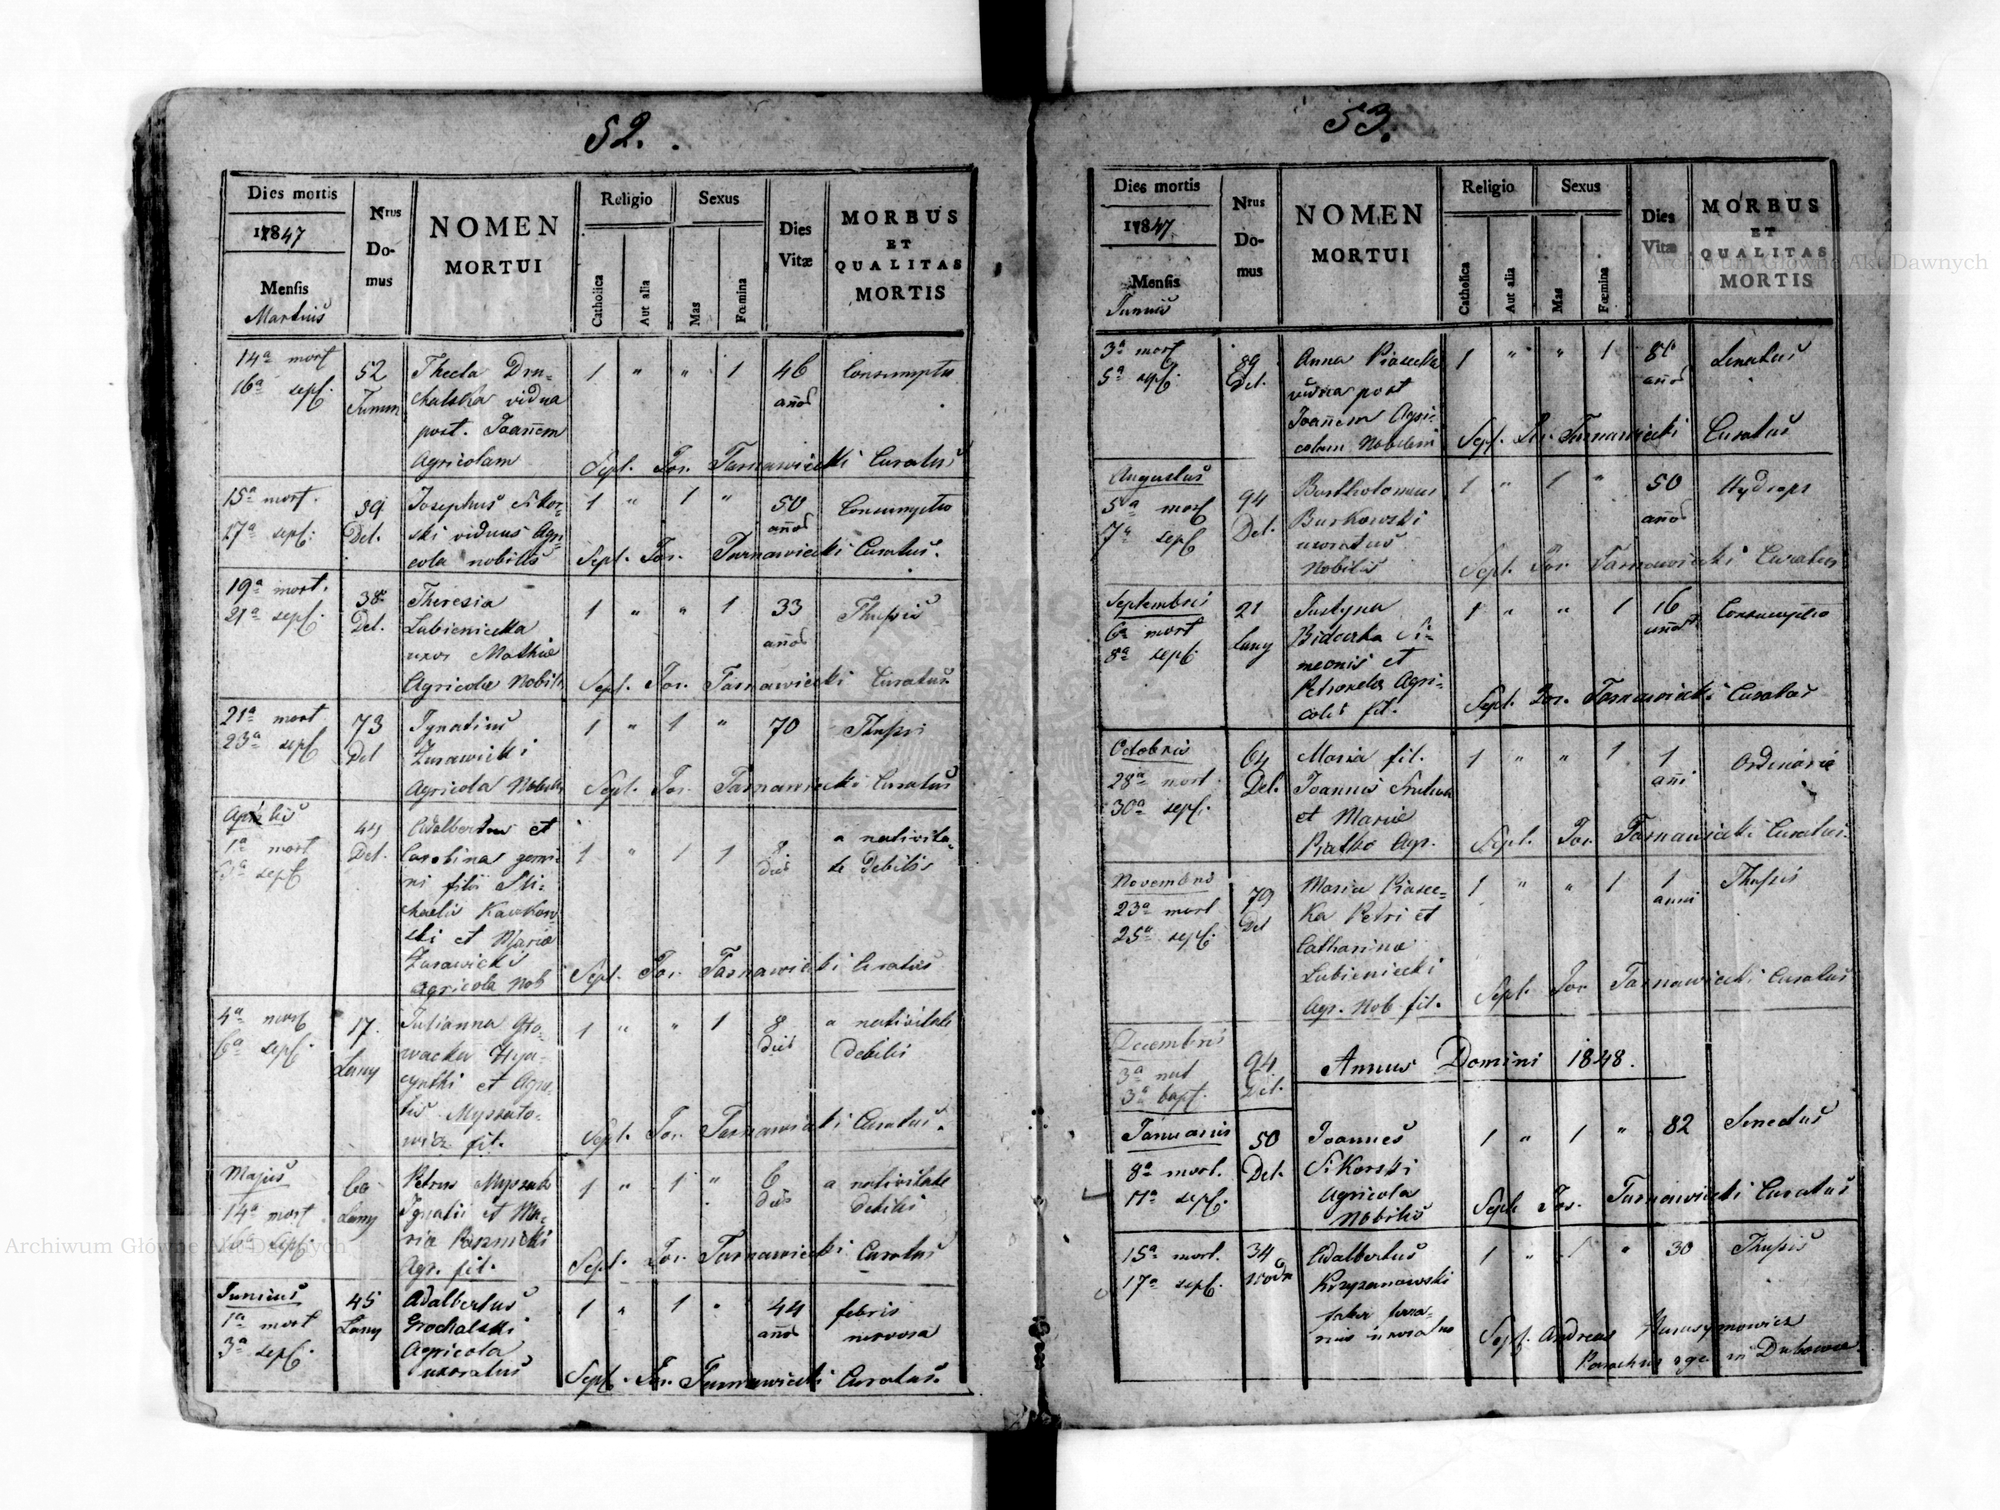 52.
Dies mortis
1847
Mensis
Martius
Nrus
Do-
mus
NOMEN
MORTUI
Religio
Catholica
Aut alia
Sexus
Mas
Fœmina
Dies
Vitæ
MORBUS
ET
QUALITAS
MORTIS
14a mort
16a sepl.
52
Thecla Dru-
chalska vidua
post. Joañem
Agricolam
1 " " 1
46
añor
Consumptio
Sept. Jos. Tarnawiecki Curatus
15a mort.
17a sepl.
39
Del.
Josephus Sikor-
ski viduus Agri
cola nobilis
1 " 1 "
50
añor
Consumptio
Sept. Jos. Tarnawiecki Curatus.
19a mort.
21a sepl.
38
Del.
Theresia
Lubieniecka
uxor Mathiæ
Agricolæ Nobilis
1 " " 1
33
añor
Thysis
Sept. Jos. Tarnawiecki Curatus
21a mort
23a sepl
73
Del
Ignatius
Żurawicki
Agricola Nobilis
1 " 1 "
70
Thysis
Sept. Jos. Tarnawiecki Curatus
Aprilis
1a mort
3a sepl
44
Del.
Adalbertus et
Carolina gemi
ni filii Mi-
chaelis
ski et Mariæ
Żurawicki
Agricola Nob
1 " 1 1
8
dies
a nativita-
te Debilis
Sept. Jos. Tarnawiecki Curatus
4a mort
6a sepl.
17.
Lany
Julianna Gło-
wacka Hya-
cynthi et Agne-
tis Myszato-
wicz fil.
1 " " 1
8
dies
a nativitate
debilis
Sept. Jos. Tarnawiecki Curatus.
Majus
14a mort
sepl.
60
Lany
Petrus
Ignatii et Ma-
ria
Agr. fil.
1 " 1 "
6
dies
a nativitate
debilis
Sept. Jos. Tarnawiecki Curatus
Junius
1a mort
3a sepl.
45
Lany
Adalbertus
Grochalski
Agricola
uxoratus
1 " 1 "
44
añor
febris
nervosa
Sept. Jos. Tarnawiecki Curatus.
53.
Dies mortis
1847
Mensis
Junius
Nrus
Do-
mus
NOMEN
MORTUI
Religio
Catholica
Aut alia
Sexus
Mas
Fœmina
Dies
Vitæ
MORBUS
ET
QUALITAS
MORTIS
3a mort
5a sepl.
89
Del.
Anna Piasecka
vidua post
Joañem Agri-
colam Nobilem
1 " " 1
añor
Senectus
Sept. Jos. Tarnawiecki Curatus
Augustus
5a mort
7a sepl
94
Del.
Bartholomeus
Burkowski
uxoratus
Nobilis
1 " 1 "
50
añor
Hydrops
Sept. Jos. Tarnawiecki Curatus
Septembris
6a mort
8a sepl.
21
Lany
Justyna
Si-
meonis et
Petronela Agri-
colis fil.
1 " " 1
16
añor
Consumptio
Sept. Jos. Tarnawiecki Curatus
Octobris
28a mort.
30a sepl.
64
Del.
Maria fil.
Joannis
et Mariæ
Piatko Agr.
1 " " 1
1
añi
Ordinaria
Sept. Jos. Tarnawiecki Curatus
Novembris
23a mort
25a sepl.
79
Del
Maria Piasec-
ka Petri et
Catharinæ
Lubieniecki
Agr. Nob fil.
1 " " 1
1
anni
Thysis
Sept. Jos. Tarnawiecki Curatus
Decembris
3a nat
3a bapt.
94
Del.
Annus Domini 1848.
Januarius
8a mort.
11a sepl.
50
Del.
Joannes
Sikorski
Agricola
Nobilis
1 " 1 "
82
Senectus
Sept Jos. Tarnawiecki Curatus
15a mort.
17a sepl.
34
Adalbertus
Krzyzanowski
faber
uxoratus
1 " 1 "
30
Thysis
Sept. Andreas Harasymowicz
Parochus in
Archiwum Główne Akt Dawnych
Archiwum Główne Akt Dawnych